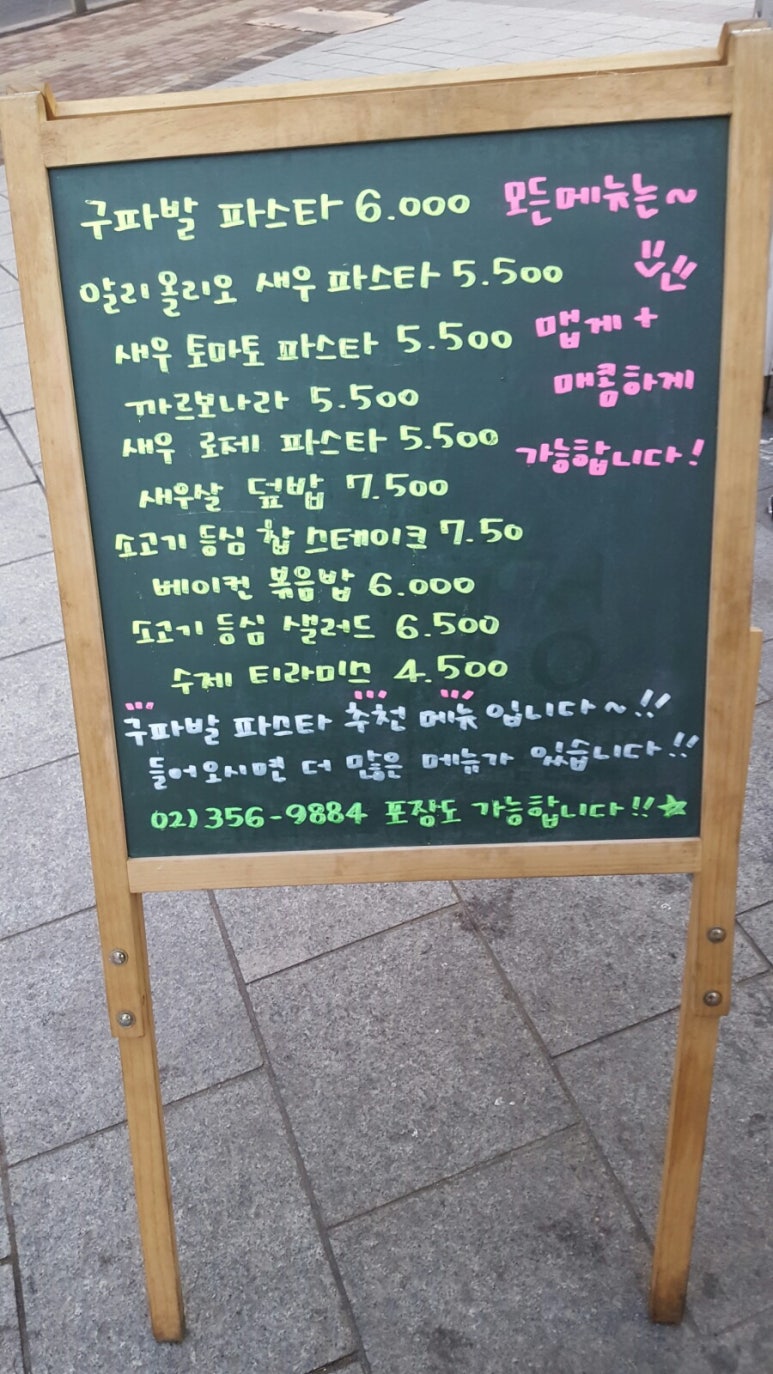 구파발 파스타 6.000
알리올리오 새우 파스타 5.500
새우 토마토 파스타 5.500
까르보나라 5.500
새우 로제 파스타 5.500
새우살 덮밥 7.500
소고기 등심 찹 스테이크 7.50
베이컨 볶음밥 6.000
소고기 등심 샐러드 6.500
수제 티라미스 4.500
모든메뉴는~
맵게+
매콤하게
가능합니다!
구파발 파스타 추천 메뉴입니다~!!
들어오시면 더 많은 메뉴가 있습니다!!
02)356-9884 포장도 가능합니다!!☆